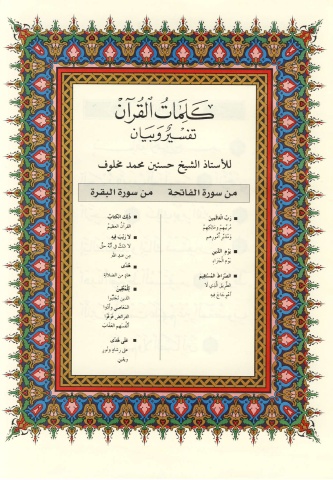 كَلِمَاتُ القُرآن
تَفسِيرٌ وَبَيان
للأستاذ الشيخ حسنين محمد مخلوف
من سورة الفاتحة
من سورة البقرة
• رَبِّ العَالَمِين
مُرَبِّيهم ومَالِكِهم
ومُدَبِّرِ أمورِهم
• يَوْمِ الدِّين
يَوْمِ الجَزَاء
• الصِّرَاطَ المُسْتَقِيم
الطَّرِيقَ الَّذِي لا
اعْوِجَاجَ فيه
• ذلِكَ الكِتَاب
القرآنُ العظيمُ
• لا رَيْبَ فِيه
لا شَكَّ في أنَّه حَقٌّ
من عند الله
• هُدًى
هادٍ من الضلالة
• لِلمُتَّقِينَ
الذين تجنَّبوا
المعاصي وأدَّوا
الفرائض فوَقَوا
أنفُسَهم العذابَ
• عَلَى هُدًى
على رشادٍ ونُورٍ
ويقينٍ